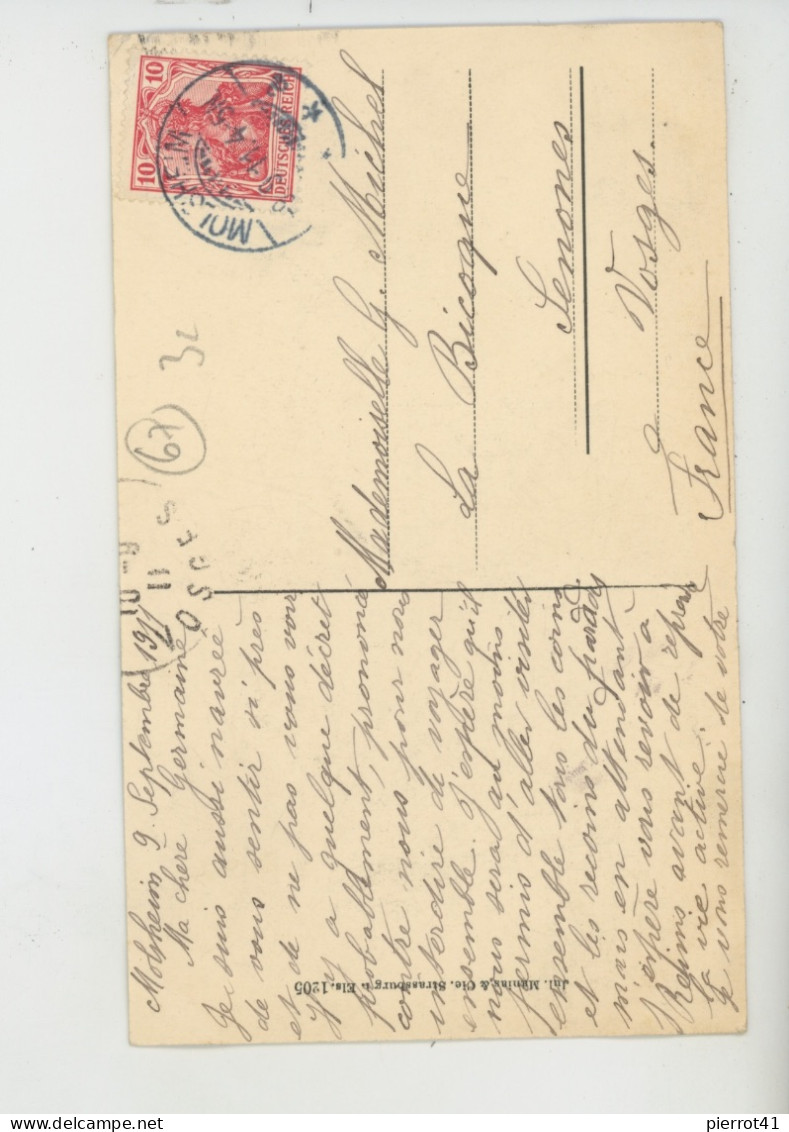 Molsheim 9 Septembre 1911
Ma chère Germaine
Je suis aussi navrée
de vous sentir si près
et de ne pas vous voir
Il y a quelque décret
probablement, prononcé
contre nous pour nous
interdire de voyager
ensemble. J'espère qu'il
nous sera au moins
permis d'aller visiter
ensemble tous les coins
et les recoins du paradis
mais en attendant
j'espère vous revoir à
Reims avant de repren
la vie active.
Je vous remercie de votre
Mademoiselle G. Michel
La Bicoque
Senones
Vosges.
France
10
10
DEUTSCHES REICH
MOLSHEIM
OSGES
11
67
32
Jul. Manias & Cie. Strassburg i. Els. 1205
pierrot41